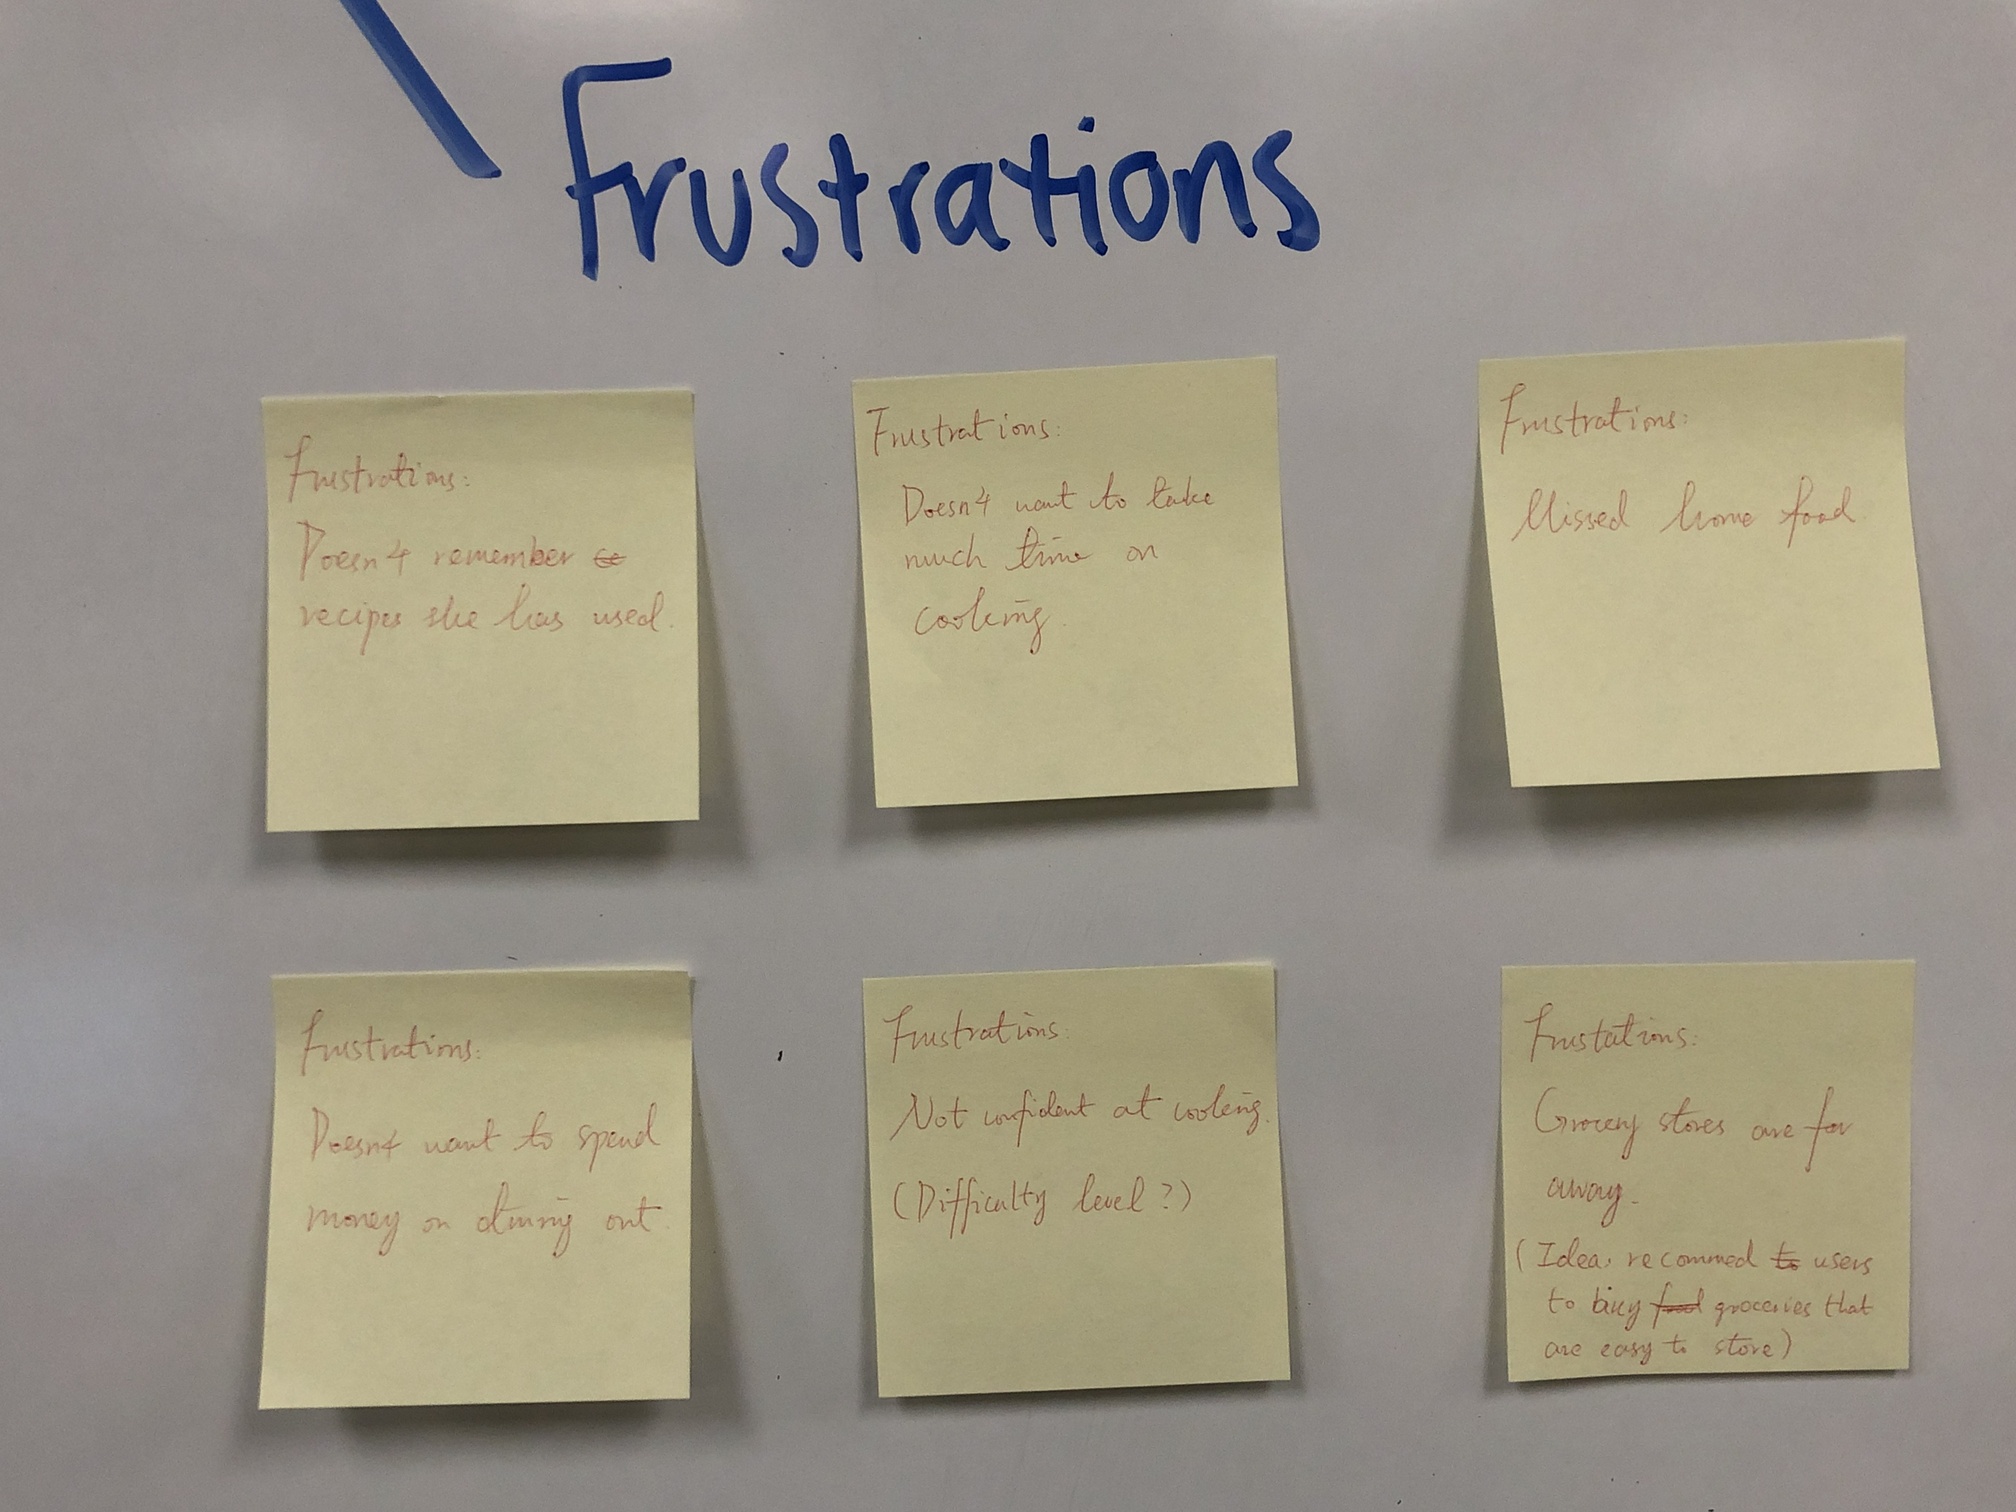 Frustrations
Frustrations:
Doesn't remember
recipes she has used.
Frustrations:
Doesn't want to take
much time on
cooking.
Frustrations:
Missed home food
Frustrations:
Doesn't want to spend
money on dining out.
Frustrations:
Not confident at cooking.
(Difficulty level?)
Frustations:
Grocery stores are far
away.
(Idea: recommed to users
to buy food groceries that
are easy to store)